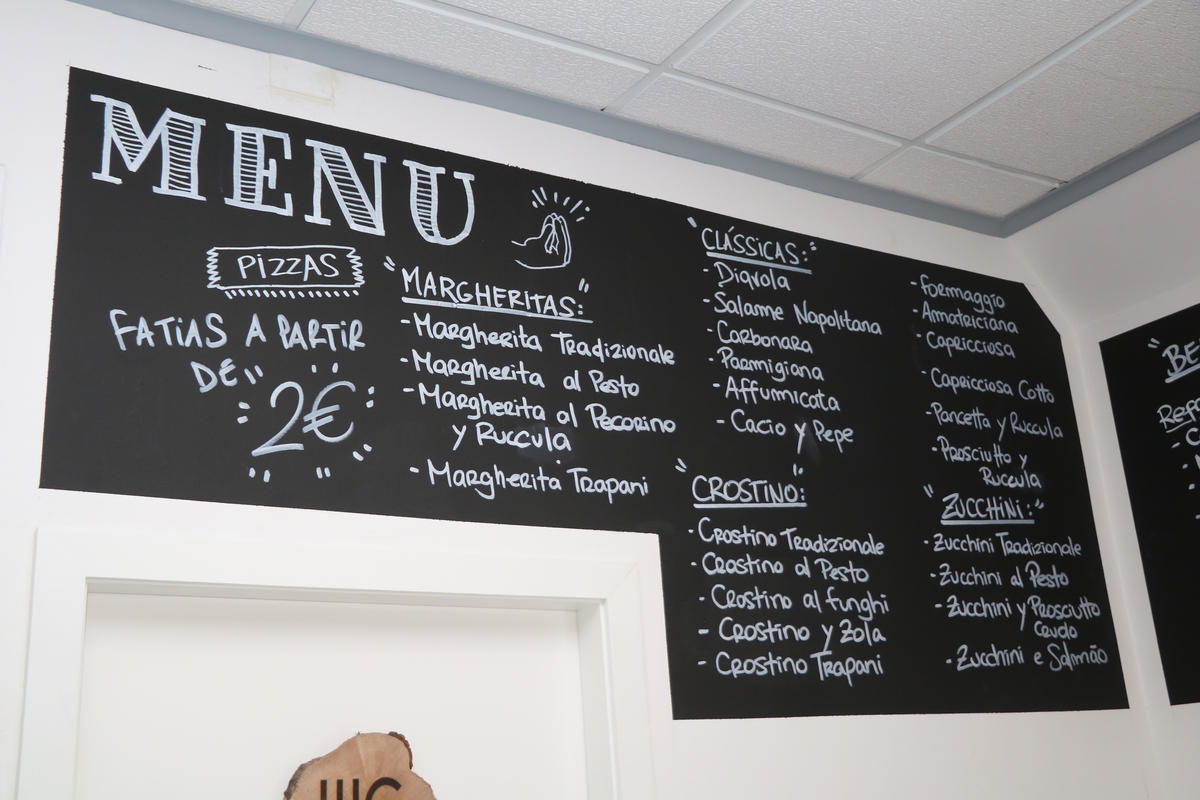 MENU
PIZZAS
FATIAS A PARTIR
DE
2€
"MARGHERITAS:"
- Margherita Tradizionale
- Margherita al Pesto
- Margherita al Pecorino
y Ruccula
- Margherita Trapani
"CLÁSSICAS:"
- Diavola
- Salame Napolitana
- Carbonara
- Parmigiana
- Affumicata
- Cacio y Pepe
- Formaggio
- Amatriciana
- Capricciosa
- Capricciosa Cotto
- Pancetta y Ruccula
- Prosciutto y
Ruccula
"CROSTINO:"
- Crostino Tradizionale
- Crostino al Pesto
- Crostino al funghi
- Crostino y Zola
- Crostino Trapani
"ZUCCHINI:"
- Zucchini Tradizionale
- Zucchini al Pesto
- Zucchini y Prosciutto
Crudo
- Zucchini e Salmão
WC